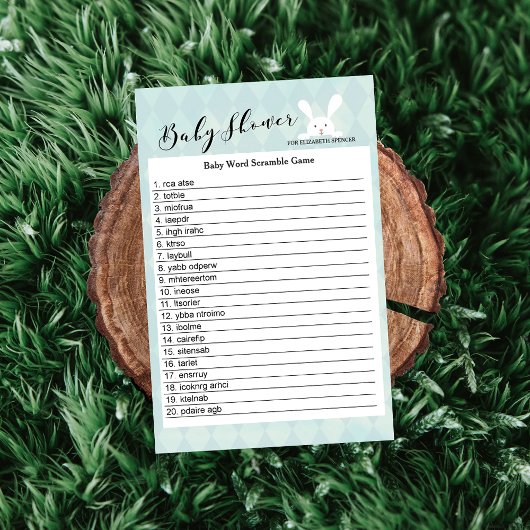 Baby Shower
FOR ELIZABETH SPENCER
Baby Word Scramble Game
1. rca atse
2. totble
3. miofrua
4. iaepdr
5. ihgh irahc
6. ktrso
7. laybull
8. yabb odperw
9. mhtereertom
10. ineose
11. ltsorier
12. ybba ntroimo
13. ibolme
14. cairefip
15. sitensab
16. tarlet
17. ensrruy
18. icoknrg arnci
19. ktelnab
20. pdaire agb